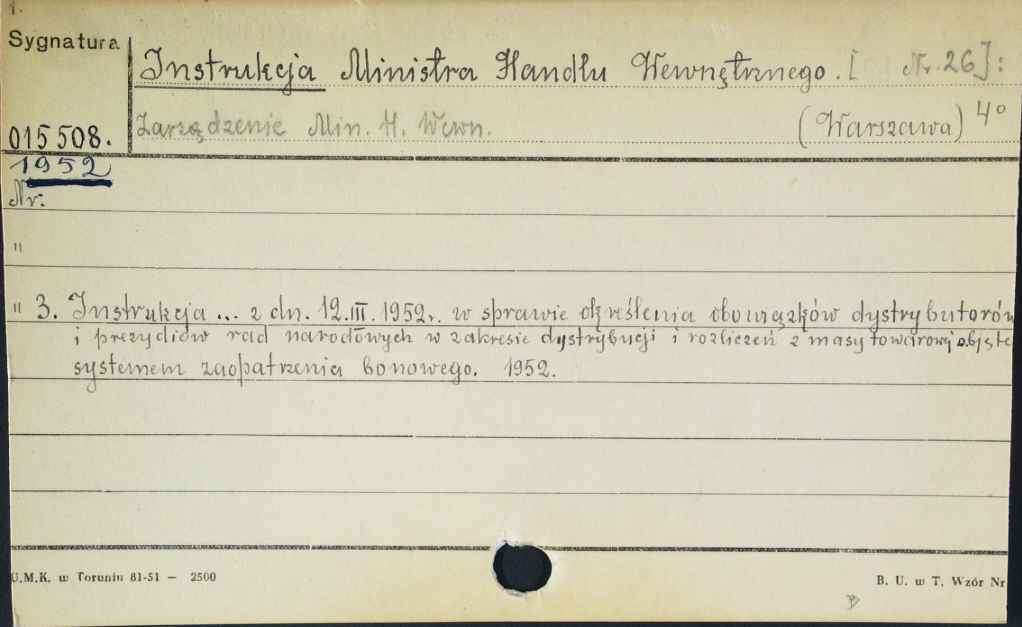 1.
Sygnatura
Instrukcja Ministra Handlu Wewnętrznego. [ Nr. 26]:
015 508.
Zarządzenie Min. H. Wewn. (Warszawa) 4°
1952
Nr.
"
" 3. Instrukcja ... z dn. 12.III. 1952r. w sprawie określenia obowiązków dystrybutorów
i prezydiów rad narodowych w zakresie dystrybucji i rozliczeń z masy towarowej obj. ste
systemem zaopatrzenia bonowego. 1952.
U.M.K. w Toruniu 81-51 — 2500
B. U. w T. Wzór Nr